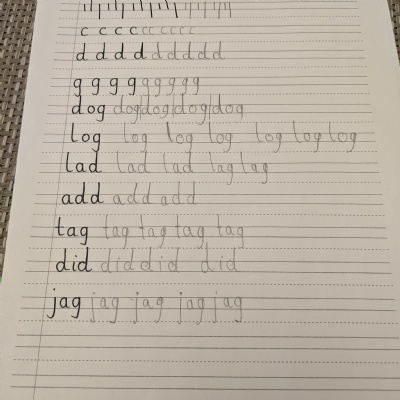 c c c c c c c c c c
d d d d d d d d d d
g g g g g g g g g g
dog dog dog dog dog
log log log log log log log
lad lad lad lag lag
add add add
tag tag tag tag tag
did did did did
jag jag jag jag jag